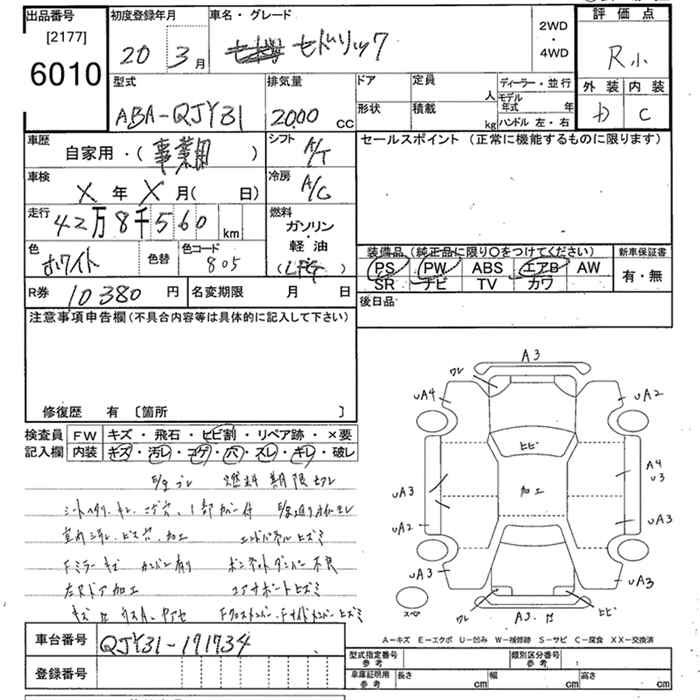 出品番号 初度登録年月 車名・グレード 2WD・4WD 評価点
[2177] 6010 20 3月 セドリック R小
型式 排気量 ドア 定員 人 ディーラー・並行 外装 内装
ABA-QJY31 2000 CC 形状 積載 kg モデル年式 年 ハンドル 左・右 C
車歴 自家用・(事業用) シフト A/T セールスポイント (正常に機能するものに限ります)
車検 X年X月( 日) 冷房 A/C
走行 42万8千560km 燃料 ガソリン・軽油 (LPG)
色 ホワイト 色替 色コード 805
装備品 (純正品に限り〇をつけてください) 新車保証書
PS PW ABS エアB AW 有・無
SR ナビ TV カワ
R券 10380円 名変期限 月 日 後日品
注意事項申告欄 (不具合内容等は具体的に記入して下さい)
修復歴 有 〔箇所 〕
検査員 FW キズ・飛石・ヒビ割・リペア跡・×要
記入欄 内装 キズ・汚レ・コゲ・穴・スレ・キレ・破レ
燃料期限切レ
加工 エンドパネルヒズミ
Fミラーキズ カンバン有り ボンネットダンパー不良
左Rドア加工 コアサポートヒズミ
Fクロスメンバー・Fサイドメンバーヒズミ
A3
ワレ
UA4 UA2
ヒビ
加工
UA3 A4 U3
UA2 UA3
UA3 UA3
スペア ワレ A3 ヒビ
A-キズ E-エクボ U-凹み W-補修跡 S-サビ C-腐食 XX-交換済
車台番号 QJY31-171734
型式指定番号 参考 類別区分番号 参考
登録番号
車庫証明用 参考 長さ cm 幅 cm 高さ cm